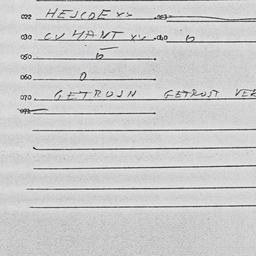 022 HEJCDE xx
030 CV HANT xx .040 b
050 b
060 0
070 GETROSN GETROST VER